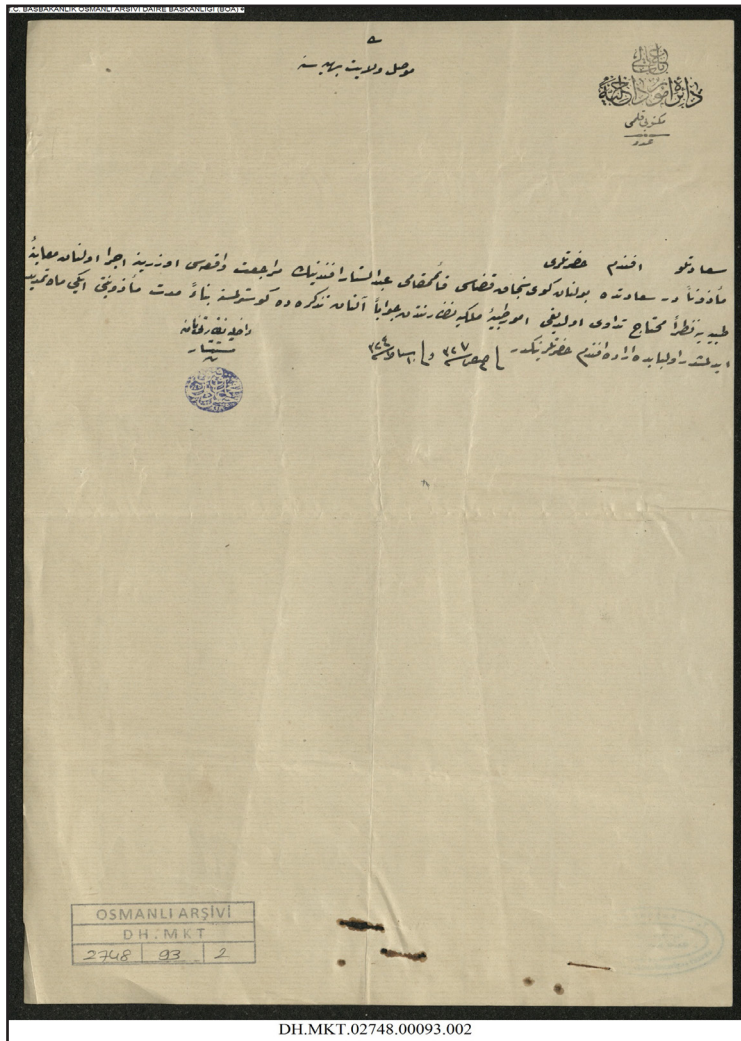 T.C. BAŞBAKANLIK OSMANLI ARŞİVİ DAİRE BAŞKANLIĞI (BOA)
موصل ولايت بهيه سنه
باب عالی
دائره امور داخليه
مكتوبی قلمی
عدد
سعادتلو افندم حضرتلری
مأذوناً در سعادتده بولنان كوی سنجاق قضاسی قائممقامی عبدالستار افندينك مراجعت واقعه سی اوزرينه اجرا اولنان معاينۀ
طبيه يه نظراً محتاج تداوی اولديغی امور طبيۀ ملكيه نظارتندن جواباً آلنان تذكره ده كوسترلمسنه بناءً مدت مأذونيتی ايكی ماه تمديد
ايدلمشدر اولبابده اراده افندم حضرتلرينكدر
داخليه ناظری نامنه
مستشار
OSMANLI ARŞİVİ
DH.MKT
2748 93 2
DH.MKT.02748.00093.002